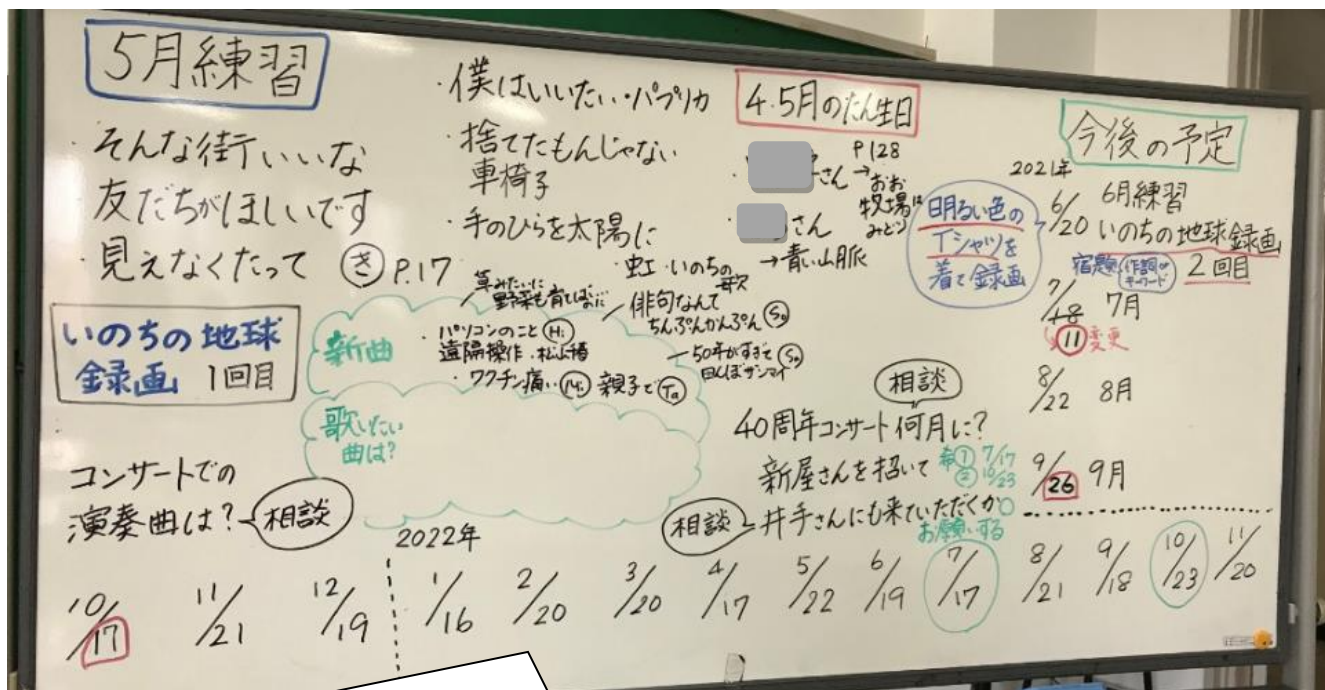 5月練習
・そんな街いいな
友だちがほしいです
見えなくたって き P.17
いのちの地球
録画 1回目
コンサートでの
演奏曲は? 相談
・僕はいいたい・パプリカ
・捨てたもんじゃない
車椅子
・手のひらを太陽に
・虹・いのちの
歌
新曲
草みたいに
野菜も育てばいいに
・パソコンのこと Hi
遠隔操作・松山椿
・ワクチン痛い Mi 親子で Ta
俳句なんて
ちんぷんかんぷん So
50年がすぎて
田んぼザンマイ So
歌いたい
曲は?
4.5月のたん生日
P128
さん→おお
牧場は
みどり
さん
→青い山脈
明るい色の
Tシャツを
着て録画
相談
40周年コンサート何月に?
新屋さんを招いて 希① 7/17
② 10/23
相談 井手さんにも来ていただくか○
お願いする
今後の予定
2021年
6/20 6月練習
いのちの地球録画
宿題 作詞or
キーワード 2回目
7/18 7月
11 変更
8/22 8月
9/26 9月
10/17 11/21 12/19
2022年
1/16 2/20 3/20 4/17 5/22 6/19 7/17 8/21 9/18 10/23 11/20